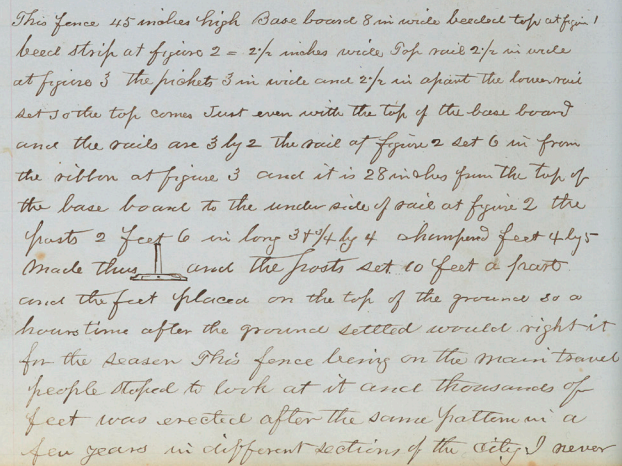 This fence 45 inches high Base board 8 in wide beeded top at figur 1
beed strip at figure 2 = 2 1/2 inches wide Top rail 2 1/2 in wide
at figure 3 the pickets 3 in wide and 2 1/2 in apart the lower rail
set so the top comes Just even with the top of the base board
and the rails are 3 by 2 the rail at figure 2 set 6 in from
the ribbon at figure 3 and it is 28 inches from the top of
the base board to the under side of rail at figure 2 the
posts 2 feet 6 in long 3 + 3/4 by 4 feet 4 by 5
made thus and the posts set 10 feet a part
and the feet placed on the top of the ground so a
hours time after the ground settled would right it
for the season This fence being on the main travel
people stoped to look at it and thousands of
feet was erected after the same pattern in a
few years in different sections of the city I never